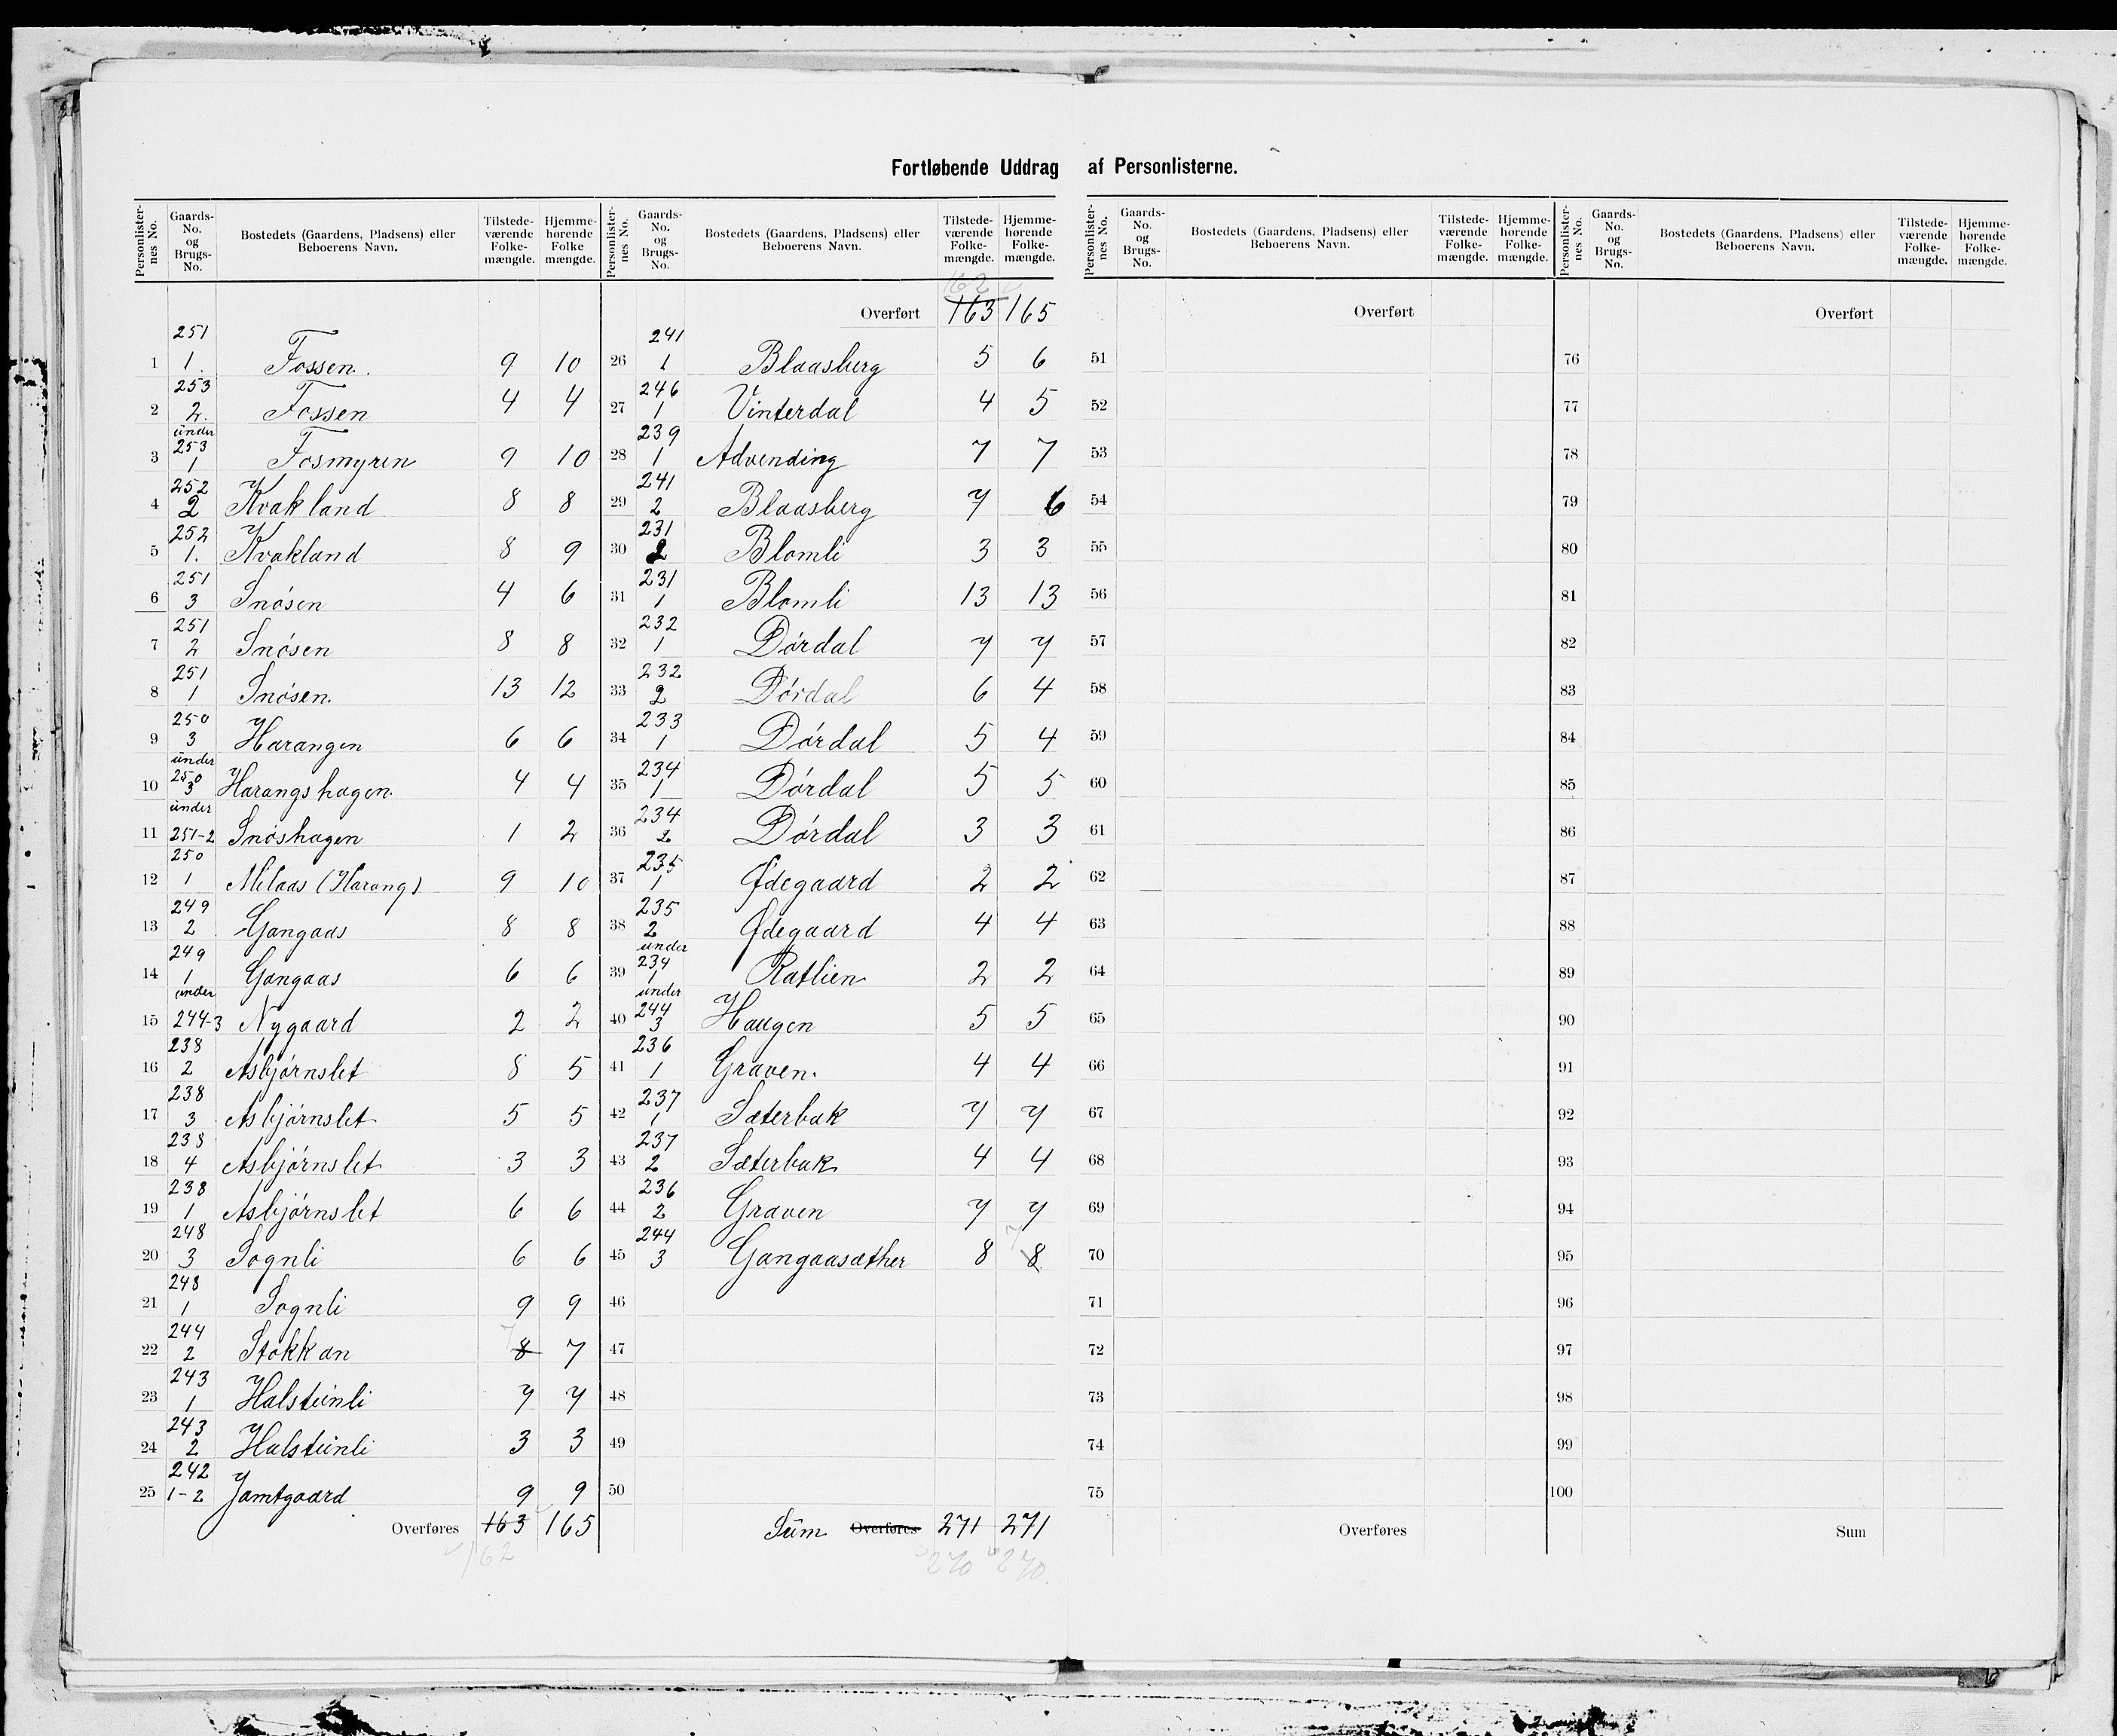 Fortløbende Uddrag af Personlisterne.
Personlisternes No. Gaards-No. og Brugs-No. Bostedets (Gaardens, Pladsens) eller Beboerens Navn. Tilstedeværende Folkemængde. Hjemmehørende Folkemængde.
1 251 1. Fossen. 9 10
2 253 2. Fossen 4 4
3 under 253 1 Fosmyren 9 10
4 252 2 Kvakland 8 8
5 252 1. Kvakland 8 9
6 251 3 Snøsen 4 6
7 251 2 Snøsen 8 8
8 251 1 Snøsen. 13 12
9 250 3 Harangen 6 6
10 under 250 3 Harangshagen. 4 4
11 under 251-2 Snøshagen 1 2
12 250 1 Melaas (Harang) 9 10
13 249 2 Gangaas 8 8
14 249 1 Gangaas 6 6
15 under 244-3 Nygaard 2 2
16 238 2 Asbjørnslet 8 5
17 238 3 Asbjørnslet 5 5
18 238 4 Asbjørnslet 3 3
19 238 1 Asbjørnslet 6 6
20 248 3 Sognli 6 6
21 248 1 Sognli 9 9
22 244 2 Stokkan 8 7 7
23 243 1 Halsteinli 7 7
24 243 2 Halsteinli 3 3
25 242 1-2 Jamtgaard 9 9
Overføres 163 165
162
Personlisternes No. Gaards-No. og Brugs-No. Bostedets (Gaardens, Pladsens) eller Beboerens Navn. Tilstedeværende Folkemængde. Hjemmehørende Folkemængde.
162
Overført 163 165
26 241 1 Blaasberg 5 6
27 246 1 Vinterdal 4 5
28 239 1 Advending 7 7
29 241 2 Blaasberg 7 6
30 231 2 Blomli 3 3
31 231 1 Blomli 13 13
32 232 1 Dørdal 7 7
33 232 2 Dørdal 6 4
34 233 1 Dørdal 5 4
35 234 1 Dørdal 5 5
36 234 2 Dørdal 3 3
37 235 1 Ødegaard 2 2
38 235 2 Ødegaard 4 4
39 under 234 1 Ratlien 2 2
40 under 244 3 Haugen 5 5
41 236 1 Graven. 4 4
42 237 1 Sæterbak 7 7
43 237 2 Sæterbak 4 4
44 236 2 Graven 7 7
45 244 3 Gangaasæther 8 7 8
46
47
48
49
50
Sum Overføres 271 271
270 270.
Personlisternes No. Gaards-No. og Brugs-No. Bostedets (Gaardens, Pladsens) eller Beboerens Navn. Tilstedeværende Folkemængde. Hjemmehørende Folkemængde.
Overført
51
52
53
54
55
56
57
58
59
60
61
62
63
64
65
66
67
68
69
70
71
72
73
74
75
Overføres
Personlisternes No. Gaards-No. og Brugs-No. Bostedets (Gaardens, Pladsens) eller Beboerens Navn. Tilstedeværende Folkemængde. Hjemmehørende Folkemængde.
Overført
76
77
78
79
80
81
82
83
84
85
86
87
88
89
90
91
92
93
94
95
96
97
98
99
100
Sum